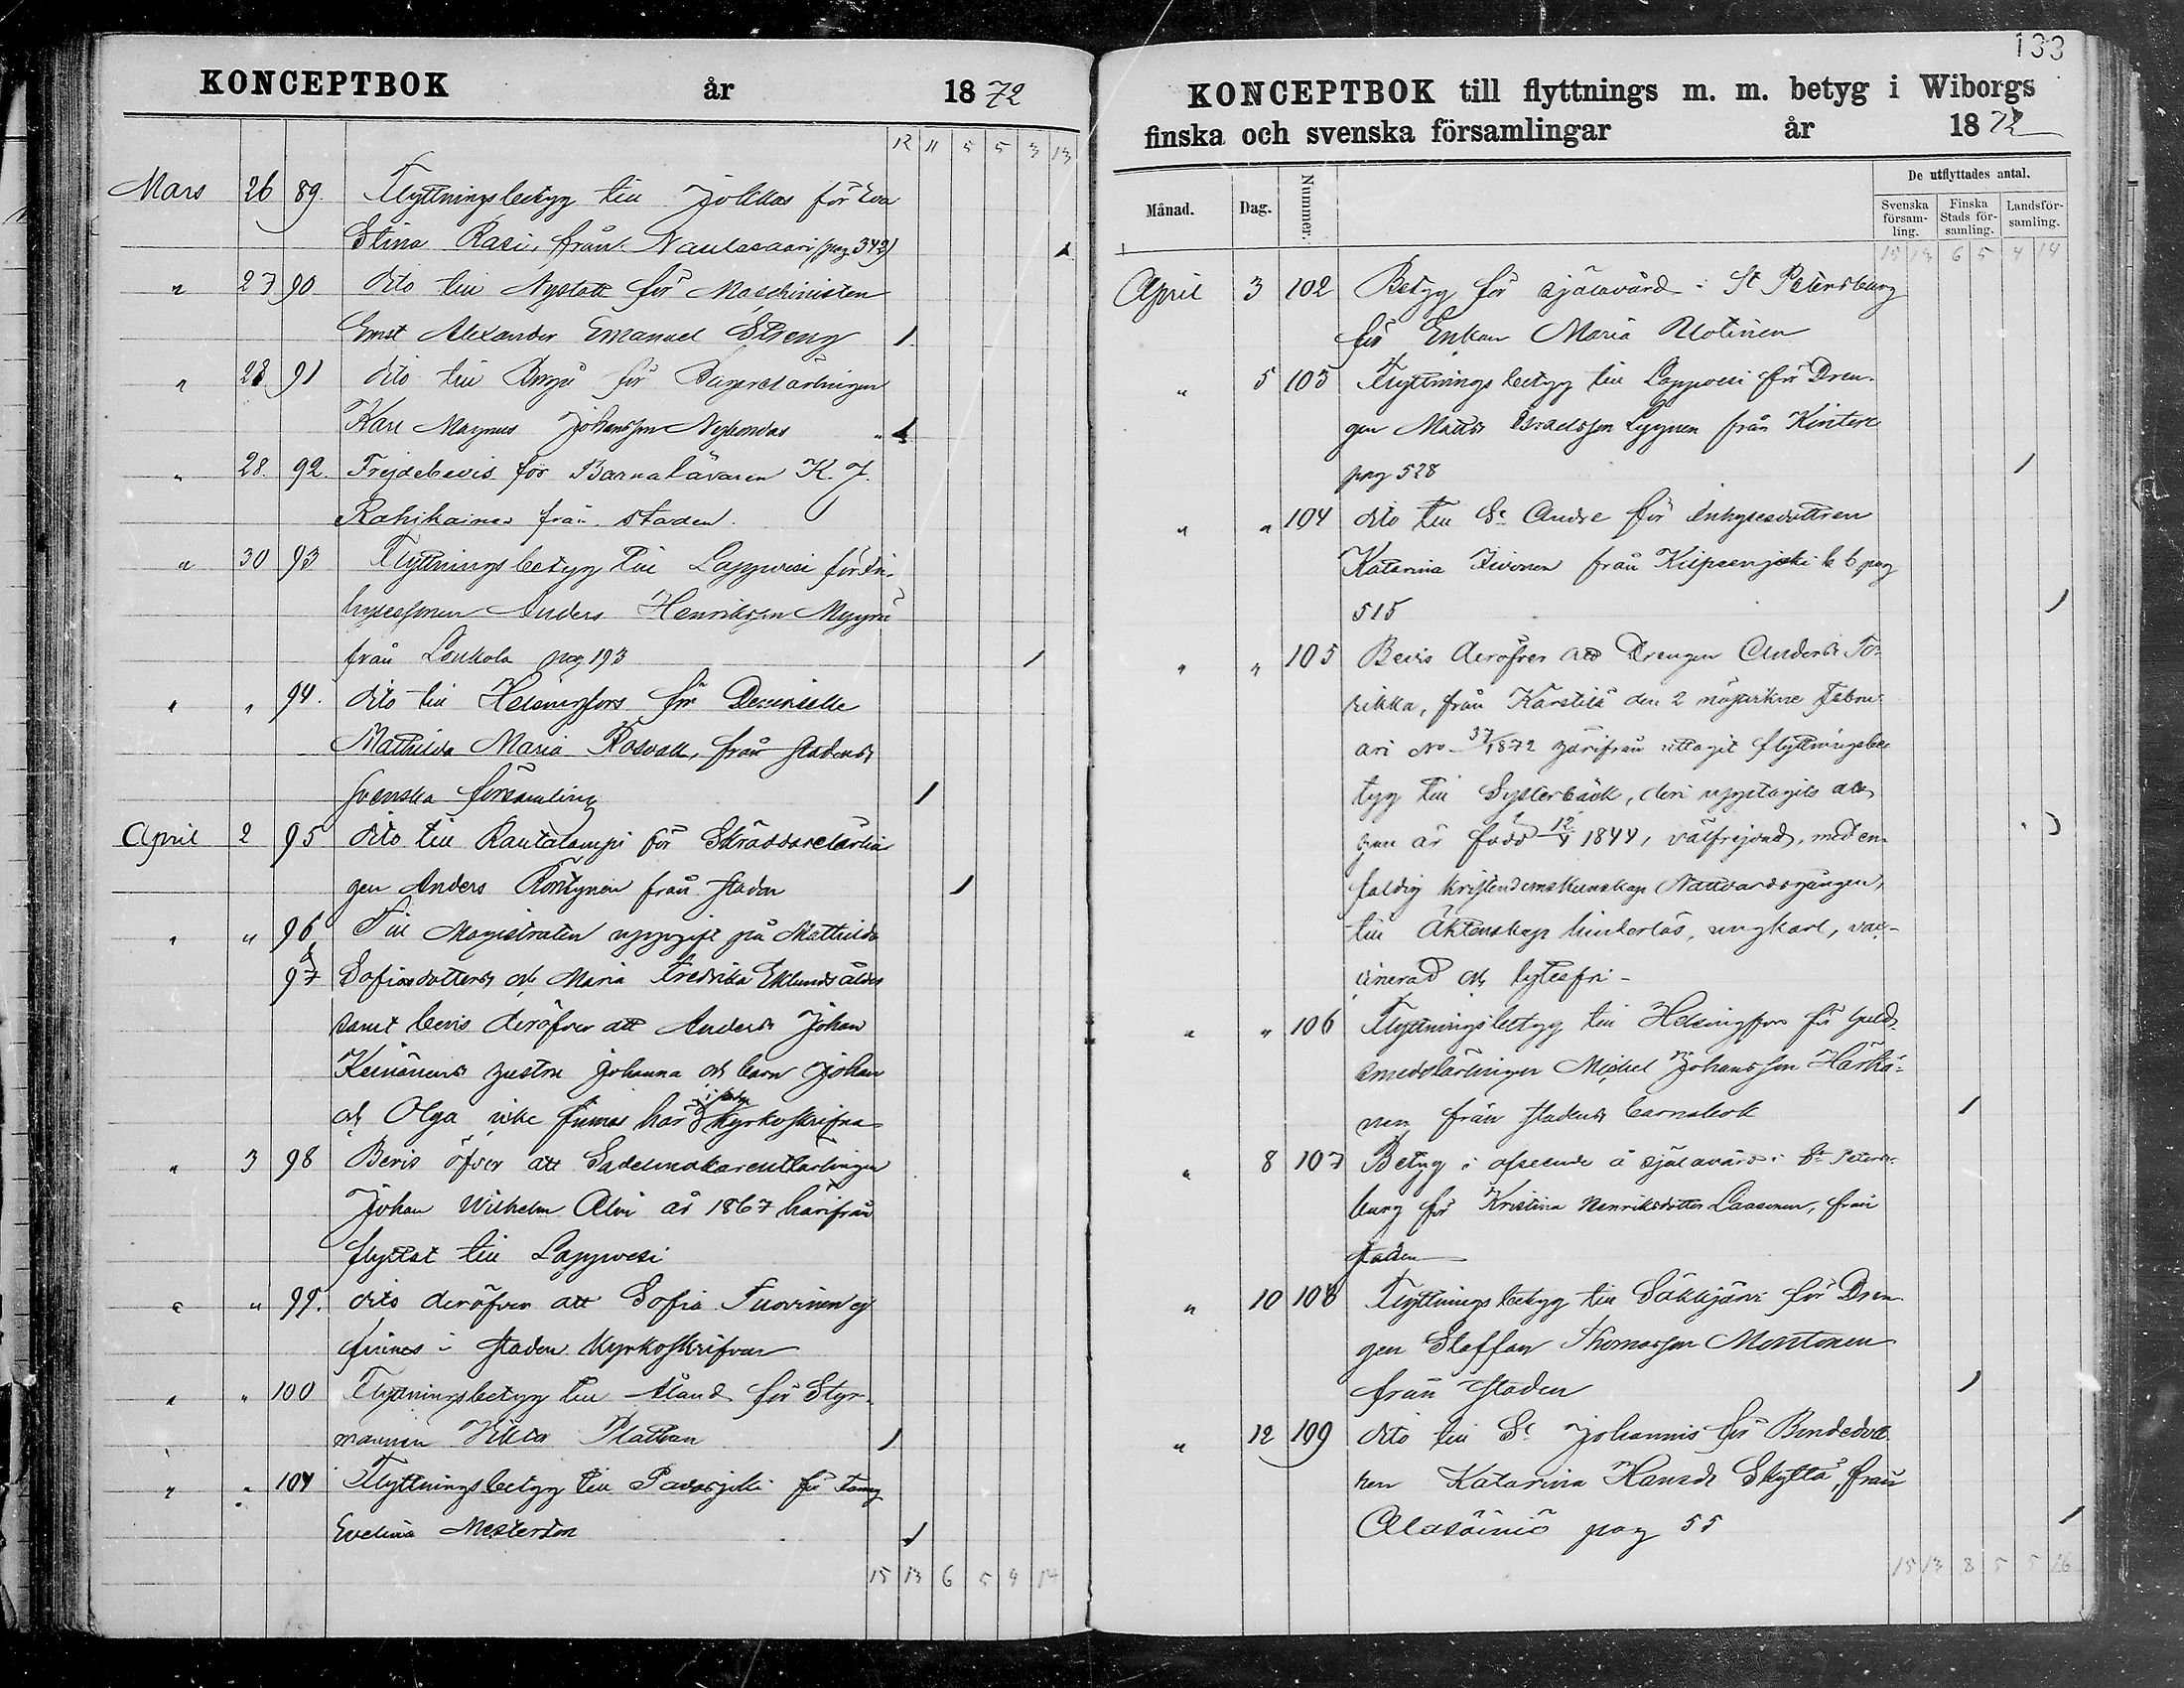 133
KONCEPTBOK år 1872
12 11 5 5 3 13
Mars 26 89. Flyttningsbetyg till Jokkas för Eva
Stina Rasi, från Naulasaari (pag 343)
" 27 90 dito till Nystad för Maschinisten
Ernst Alexander Emanuel Spreng 1
" 28 91 dito till Borgå för
Karl Magnus Johansson
" 28. 92. Frejdebevis för Barnaläraren K. J.
Rahikainen från staden.
" 30 93 Flyttningsbetyg till Lappvesi för In-
hysessonen Anders Henriksson Myyrä
från Loukola pag 193 1
" " 94. dito till Helsingfors för Demiselle
Mathilda Maria Rosvall, från stadens
svenska församling 1
April 2 95 dito till Rautalampi för Skräddarelärlin
gen Anders från staden 1
" " 96 Till Magistraten uppgift på Mathilda
& 97 Sofiasdotters och Maria Fredrika Eklunds ålder
samt bevis deröfver att Anders Johan
Keinänens hustru Johanna och barn Johan
och Olga icke finnas här kyrkoskrifna
" 3 98 Bevis öfver att Sadelmakarelärlingen
Johan Wilhelm Alm år 1867 härifrån
flyttat till Lappvesi
" " 99. dito deröfver att Sofia Tuovinen ej
finnes i staden kyrkoskrifven
" " 100 Flyttningsbetyg till Åland för Styr-
mannen Viktor Plathan 1
" " 101 Flyttningsbetyg till för
Evelina Mesterton 1
15 13 6 5 4 14
KONCEPTBOK till flyttnings m. m. betyg i Wiborgs
finska och svenska församlingar år 1872
Månad. Dag. Nummer. De utflyttades antal.
Svenska församling. Finska Stads församling. Landsförsamling.
15 13 6 5 4 14
April 3 102 Betyg för själavård i St Petersburg
för Enkan Maria Uotinen
" 5 103 Flyttningsbetyg till Lappvesi för Dren-
gen Matts Israelsson Lyynen från Kintere
pag 528 1
" " 104 dito till St Andre för Inhysesdottren
Katarina Iivonen från Kilpeenjoki pag
515 1
" " 105 Bevis deröfver att Drengen Anders To-
rikka, från Kärstilä den 2 Febru
ari No 37/1872 härifrån uttagit flyttningsbe
tyg till Systerbäck, deri upptagits att
han är född 12/4 1844, välfrejdad, med en
faldig kristendomskunskap Nattvardsgången,
till Äktenskap hinderlös, ungkarl, vac-
cinerad och lytesfri -
" " 106 Flyttningsbetyg till Helsingfors för Guld
smedslärlingen Mickel Johansson Härkö-
nen från stadens barnabok 1
" 8 107 Betyg i afseende å själavård i St Peters-
burg för Kristina Henriksdotter Laasonen, från
staden
" 10 108 Flyttningsbetyg till Säkkjärvi för Dren
gen Staffan Thomasson Montonen
från staden 1
" 12 109 dito till St Johannis för Bondedott
ren Katarina Hansdr Skyttä, från
Alasäiniö pag 55 1
15 13 8 5 5 16